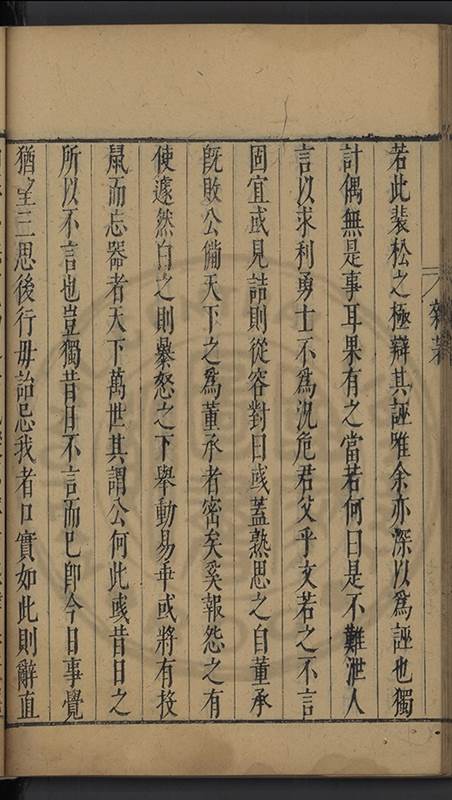 若此裴松之極辯其誣唯余亦深以爲誣也獨
計偶無是事耳果有之當若何曰是不難泄人
言以求利勇士不爲況危君父乎文若之不言
固宜或見詰則從容對曰彧蓋熟思之自董承
旣敗公備天下之爲董承者密矣奚報怨之有
使遽然白之則暴怒之下舉動易乖或將有投
鼠而忘器者天下萬世其謂公何此彧昔日之
所以不言也豈獨昔日不言而已卽今日事覺
猶望三思後行毋詒忌我者口實如此則辭直